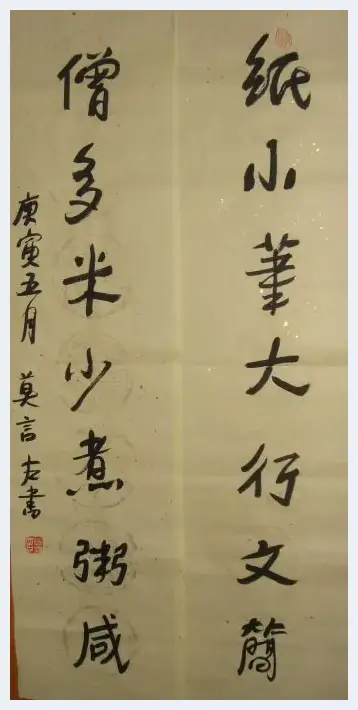 紙小筆大行文簡
僧多米少煮粥咸
庚寅五月 莫言左書